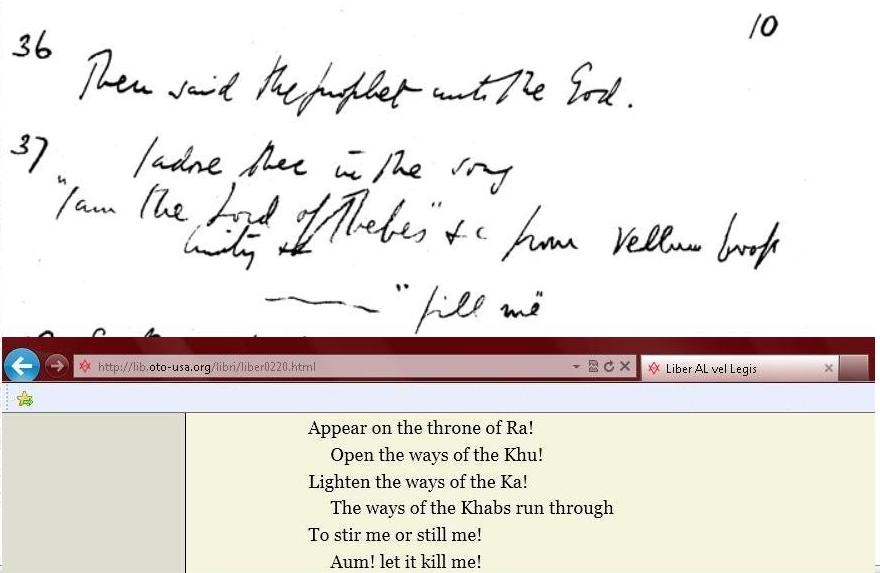 10
36
Then said the prophet unto the God.
37
I adore thee in the song
"I am the Lord of Thebes" &c from Vellum book
unity &c
"fill me"
http://lib.oto-usa.org/libri/liber0220.html
Liber AL vel Legis
Appear on the throne of Ra!
Open the ways of the Khu!
Lighten the ways of the Ka!
The ways of the Khabs run through
To stir me or still me!
Aum! let it kill me!